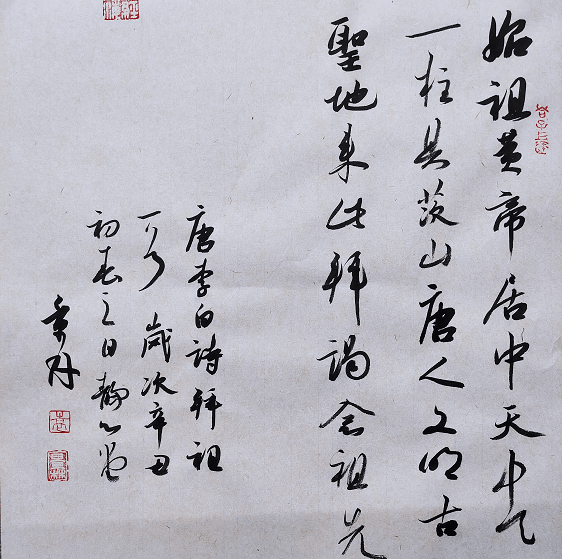 始祖黄帝居中天中天
一柱具茨山唐人文明古
聖地来此拜謁念祖先
唐李白詩拜祖
一首 歲次辛丑
初春之日靜心